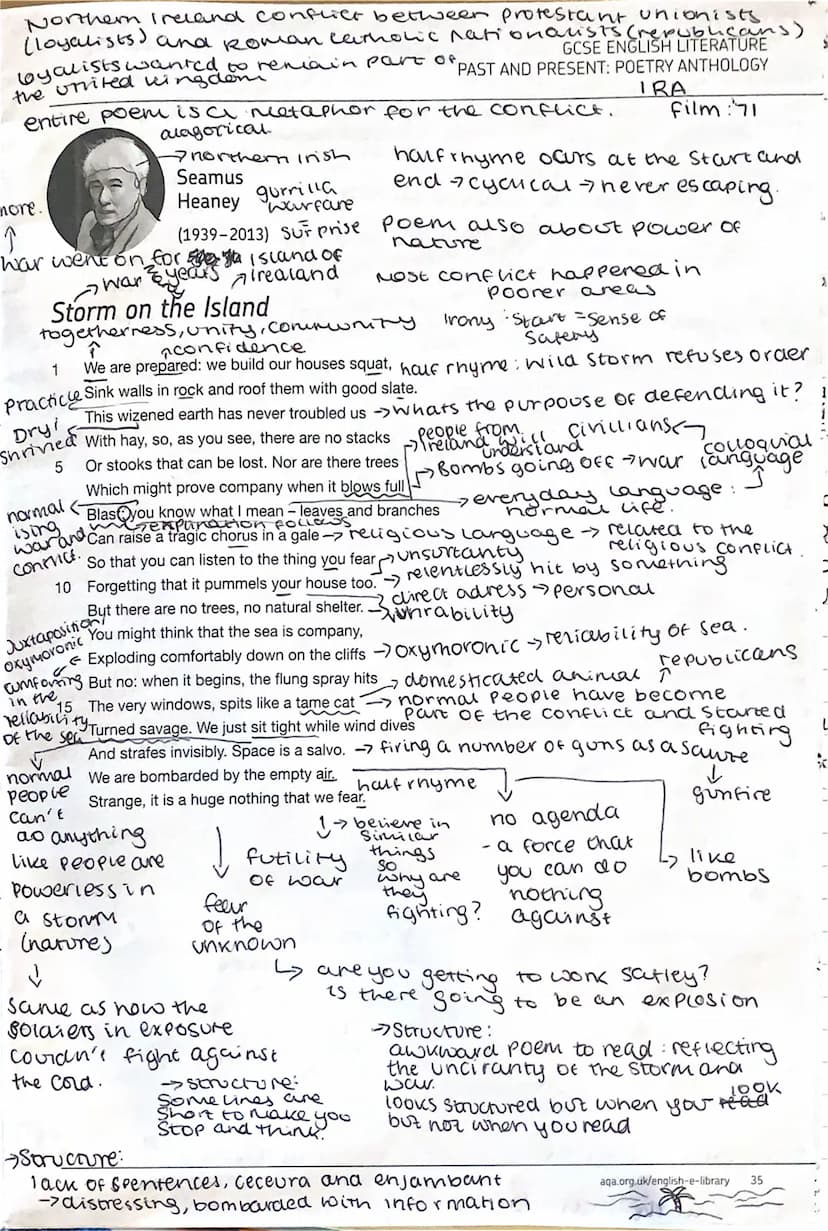 Northern Ireland conflict between protestant unionists
(loyalists) and Roman catholic nationalists (republicans)
loyalists wanted to remain part of
the United Kingdom
GCSE ENGLISH LITERATURE
PAST AND PRESENT: POETRY ANTHOLOGY
IRA
entire poem is a metaphor for the conflict.
film: '71
alagorical
→ northern Irish
Seamus
Heaney
(1939–2013)
gurrilla
warfare
surprise
half rhyme ocurs at the start and
end → cyclical → never escaping.
Poem also about power of
nature
more.
↑
war went on for
years
Island of
Irealand
→ war
Most conflict happened in
poorer areas
Storm on the Island
togetherness, unity, community
Irony: start = sense of
safety
confidence
1 We are prepared: we build our houses squat,
half rhyme: wild storm refuses order
Practicle
Sink walls in rock and roof them with good slate.
This wizened earth has never troubled us
→ whats the purpouse of defending it?
Dry/
shrivled
With hay, so, as you see, there are no stacks
people from
Ireland will
understand
civillians
5 Or stooks that can be lost. Nor are there trees
→ Bombs going off → war
colloquial
language
Which might prove company when it blows full
normal
ising
war and
conflict.
Blast: you know what I mean – leaves and branches
→ everyday language:
normal life.
explination follows
Can raise a tragic chorus in a gale
→ religious language → related to the
religious conflict.
So that you can listen to the thing you fear
→ unsurtanty
10 Forgetting that it pummels your house too.
→ relentlessly hit by something
direct adress → personal
But there are no trees, no natural shelter.
→ vunrability
Juxtaposition/
oxymoronic
You might think that the sea is company,
Exploding comfortably down on the cliffs
→ oxymoronic → reliability of sea.
comforting
in the
reliability
of the sea
But no: when it begins, the flung spray hits
→ domesticated animal
republicans
15 The very windows, spits like a tame cat
→ normal people have become
part of the conflict and started
fighting
Turned savage. We just sit tight while wind dives
And strafes invisibly. Space is a salvo.
→ firing a number of guns as a saulre
↓
gunfire
We are bombarded by the empty air.
half rhyme
Strange, it is a huge nothing that we fear.
normal
people
can't
do anything
like people are
powerless in
a storm
(nature)
↓
same as how the
soldiers in exposure
couldn't fight against
the cold.
fear
of the
unknown
futility
of war
→ believe in
similar
things
so
why are
they
fighting?
no agenda
- a force that
you can do
nothing
against
→ like
bombs
↳ are you getting to work safley?
is there going to be an explosion
→ structure:
Some lines are
short to make you
stop and think.
→ Structure:
awkward poem to read: reflecting
the unciranty of the storm and
war.
looks structured but when you look
but not when you read
→ Structure:
lack of spentences, ceceura and enjambant
→ distressing, bombarded with information
aqa.org.uk/english-e-library 35